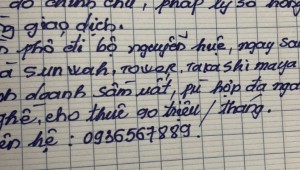 do chính chủ, pháp lý sổ hồng
g giao dịch.
phố đi bộ nguyễn huệ, ngay sau
sunwah, Tower, Takashi maya
doanh sầm uất, phù hợp đa ngà
ghề, cho thuê 90 triệu/tháng.
ên hệ: 0936567889.